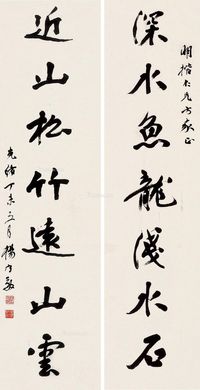 深水魚龍淺水石
近山松竹遠山雲
明楷大兄方家正
光緒丁未五月楊守敬